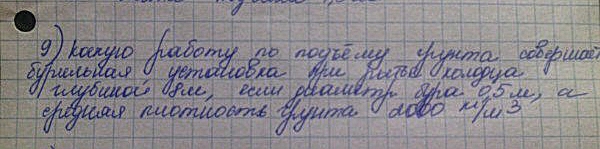 9) Какую работу по подъёму грунта совершает
бурильная установка при рытье колодца
глубиной 8м, если диаметр бура 0,5м, а
средняя плотность грунта 2000 кг/м3